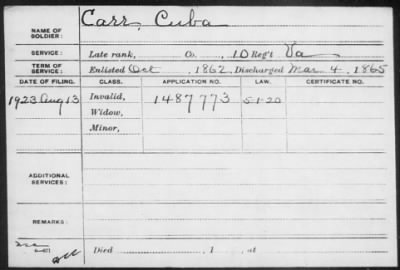 Carr, Cuba
NAME OF SOLDIER:
SERVICE: Late rank, Co., 1 D Reg't Va
TERM OF SERVICE: Enlisted Oct , 1862, Discharged Mar. 4, 1865
DATE OF FILING. CLASS. APPLICATION NO. LAW. CERTIFICATE NO.
1923 Aug 13 Invalid, 1487773 5-1-20
Widow,
Minor,
ADDITIONAL SERVICES:
REMARKS:
Died , 1 , at